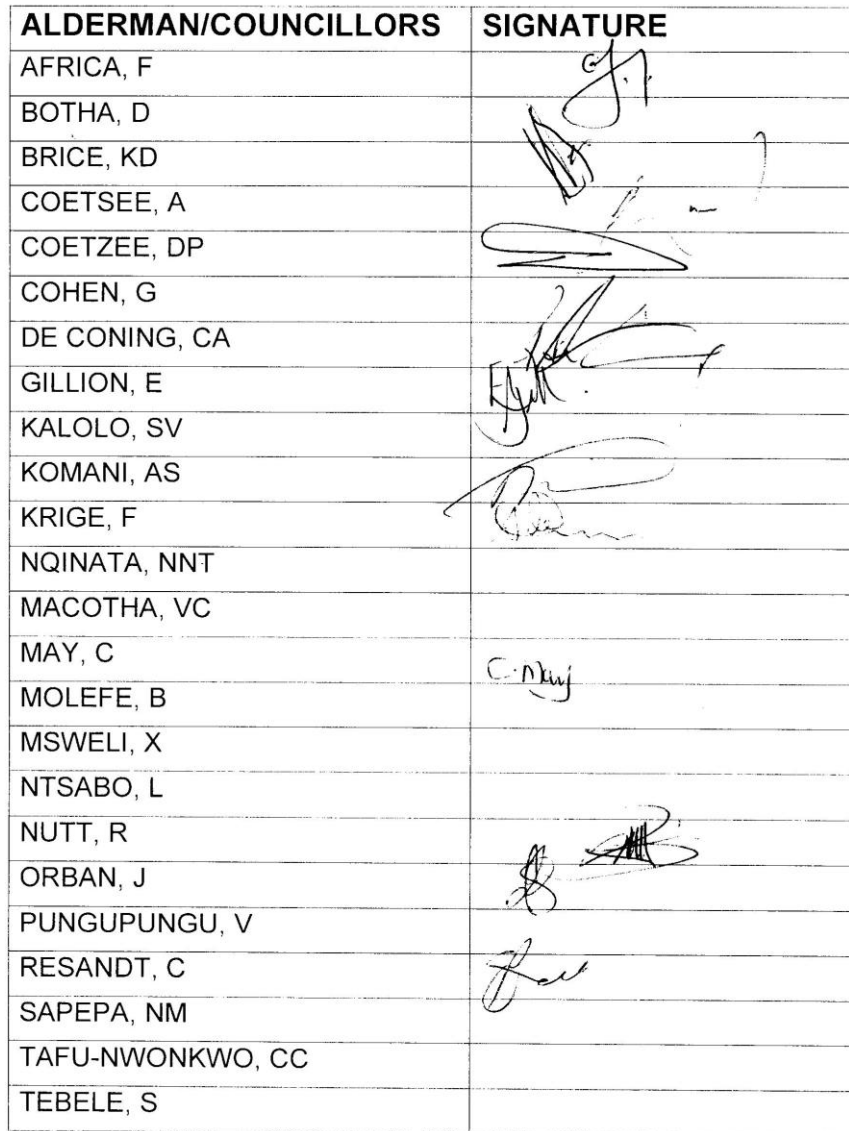 ALDERMAN/COUNCILLORS SIGNATURE
AFRICA, F
BOTHA, D
BRICE, KD
COETSEE, A
COETZEE, DP
COHEN, G
DE CONING, CA
GILLION, E
KALOLO, SV
KOMANI, AS
KRIGE, F
NQINATA, NNT
MACOTHA, VC
MAY, C C. May
MOLEFE, B
MSWELI, X
NTSABO, L
NUTT, R
ORBAN, J
PUNGUPUNGU, V
RESANDT, C
SAPEPA, NM
TAFU-NWONKWO, CC
TEBELE, S